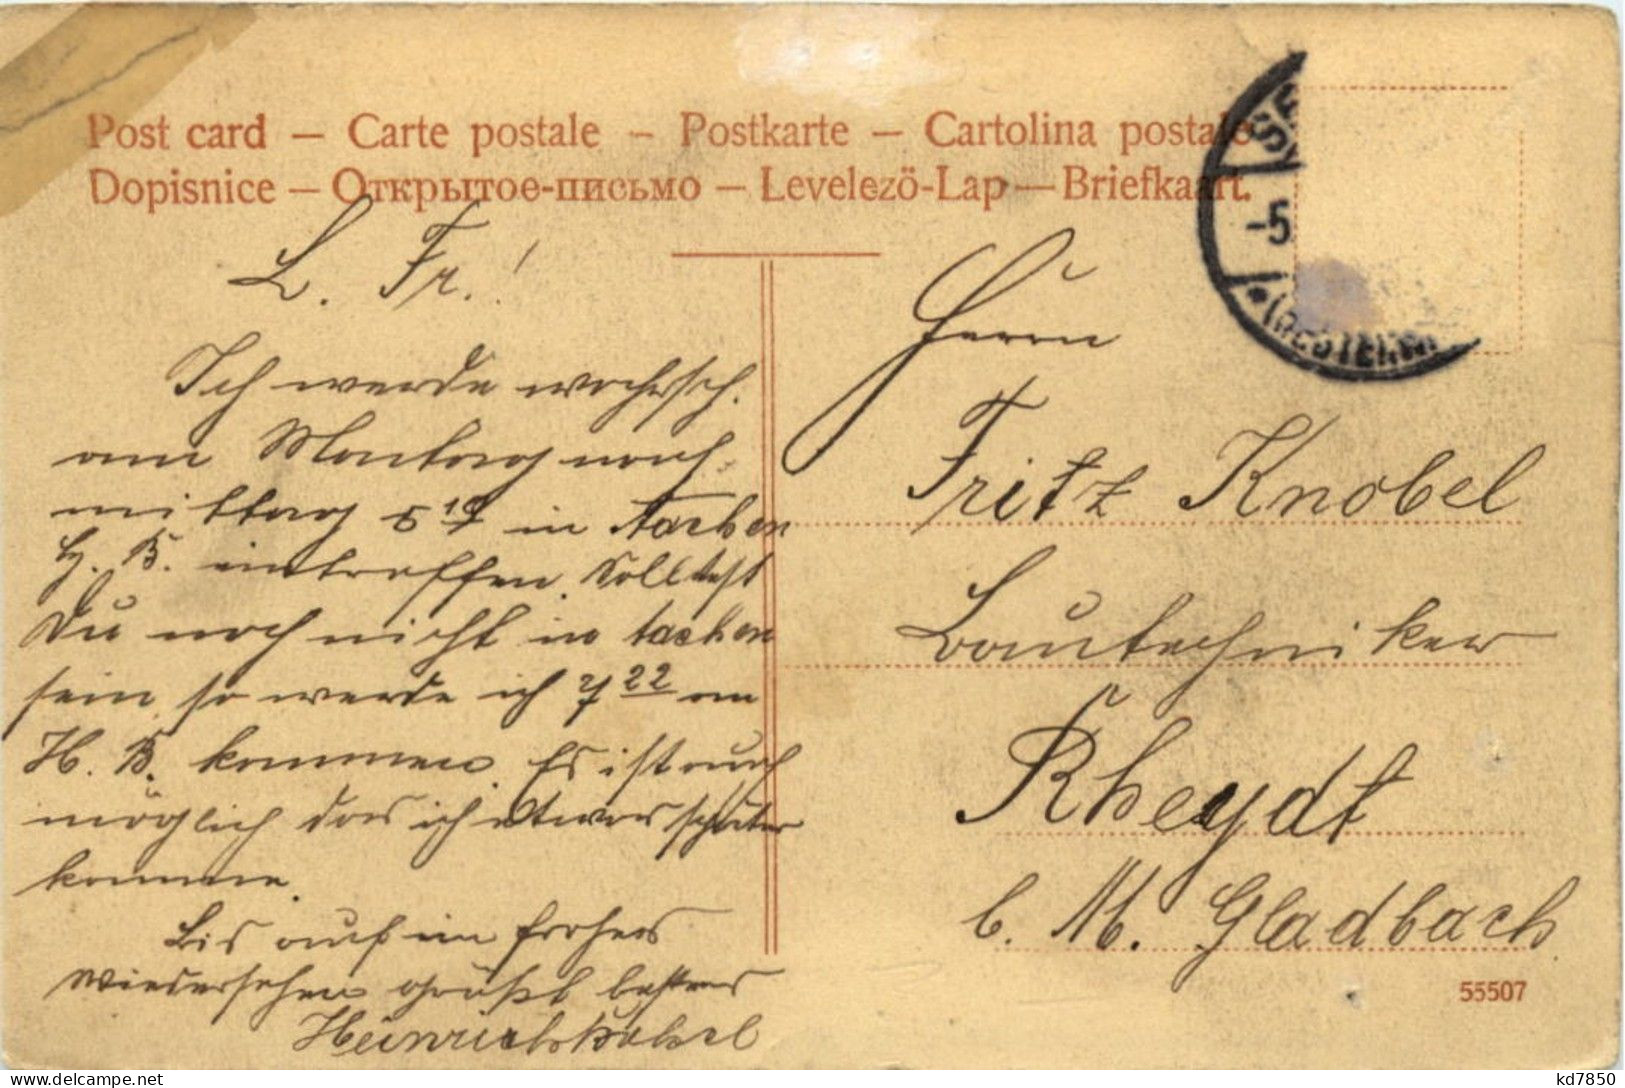 Post card – Carte postale – Postkarte – Cartolina postale
Dopisnice – Открытое-письмо – Levelezö-Lap – Briefkaart.
-5
L. Fr.!
Ich werde wahrsch.
am Montag nach-
mittag 5 19 in Aachen
H. B. eintreffen. Solltest
Du noch nicht in Aachen
sein, so werde ich 7 22 am
H. B. kommen. Es ist auch
möglich das ich etwas später
komme.
Bis auf ein frohes
Wiedersehen grüßt bestens
Heinrich
Herrn
Fritz Knobel
Bautechniker
Rheydt
b. M. Gladbach
55507
delcampe.net
kd7850